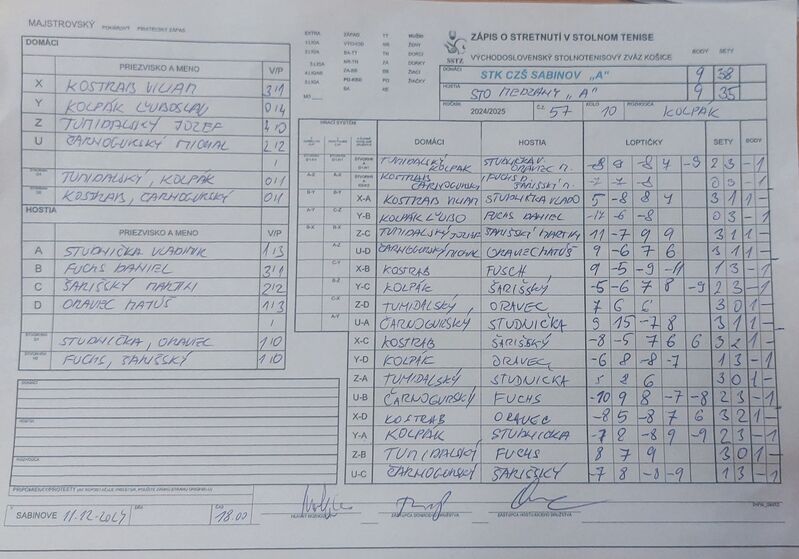 MAJSTROVSKÝ POHÁROVÝ PRIATEĽSKÝ ZÁPAS
DOMÁCI
PRIEZVISKO A MENO V/P
X KOSTRAB VILIAN 3/1
Y KOLPÁK ĽUBOSLAV 0/4
Z TUMIDALSKÝ JOZEF 4/0
U ČARNOGURSKÝ MICHAL 2/2
TUMIDALSKÝ, KOLPÁK 0/1
KOSTRAB, ČARNOGURSKÝ 0/1
HOSTIA
PRIEZVISKO A MENO V/P
A STUDNIČKA VLADIMIR 1/3
B FUCHS DANIEL 3/1
C ŠARIŠSKÝ MARTIN 2/2
D ORAVEC MATÚŠ 1/3
STUDNIČKA, ORAVEC 1/0
FUCHS, ŠARIŠSKÝ 1/0
DOMÁCI
HOSTIA
ROZHODCA
SABINOVE 11.12.2024 ČAS 18.00
ZÁPIS O STRETNUTÍ V STOLNOM TENISE
VÝCHODOSLOVENSKÝ STOLNOTENISOVÝ ZVÄZ KOŠICE
BODY SETY
DOMÁCI STK CZŠ SABINOV „A" 9 38
HOSTIA STO MEDZANY „A" 9 35
ROČNÍK 2024/2025 Č.Z. 57 KOLO 10 ROZHODCA KOLPÁK
HRACÍ SYSTÉM DOMÁCI HOSTIA LOPTIČKY SETY BODY
TUMIDALSKÝ KOLPÁK STUDNIČKA V. ORAVEC M. -8 9 -8 4 -9 2 3 - 1
KOSTRAB ČARNOGURSKÝ FUCHS D. ŠARIŠSKÝ M. -7 -7 -8 0 3 - 1
X-A KOSTRAB VILIAN STUDNIČKA VLADO 5 -8 8 7 3 1 1 -
Y-B KOLPÁK ĽUBO FUCHS DANIEL -17 -6 -8 0 3 - 1
Z-C TUMIDALSKÝ JOZEF ŠARIŠSKÝ MARTIN 11 -7 9 9 3 1 1 -
U-D ČARNOGURSKÝ MICHAL ORAVEC MATÚŠ 9 -6 7 6 3 1 1 -
X-B KOSTRAB FUSCH 9 -5 -9 -11 1 3 - 1
Y-C KOLPÁK ŠARIŠSKÝ -5 -6 7 8 -9 2 3 - 1
Z-D TUMIDALSKÝ ORAVEC 7 6 6 3 0 1 -
U-A ČARNOGURSKÝ STUDNIČKA 9 15 -7 8 3 1 1 -
X-C KOSTRAB ŠARIŠSKÝ -8 -5 7 6 6 3 2 1 -
Y-D KOLPÁK ORAVEC -6 8 -8 -7 1 3 - 1
Z-A TUMIDALSKÝ STUDNICKA 5 8 6 3 0 1 -
U-B ČARNOGURSKÝ FUCHS -10 9 8 -7 -8 2 3 - 1
X-D KOSTRAB ORAVEC -8 5 -8 7 6 3 2 1 -
Y-A KOLPÁK STUDNICKA -7 8 -8 9 -9 2 3 - 1
Z-B TUMIDALSKÝ FUCHS 8 7 9 3 0 1 -
U-C ČARNOGURSKÝ ŠARIŠSKÝ -7 8 -8 -9 1 3 - 1